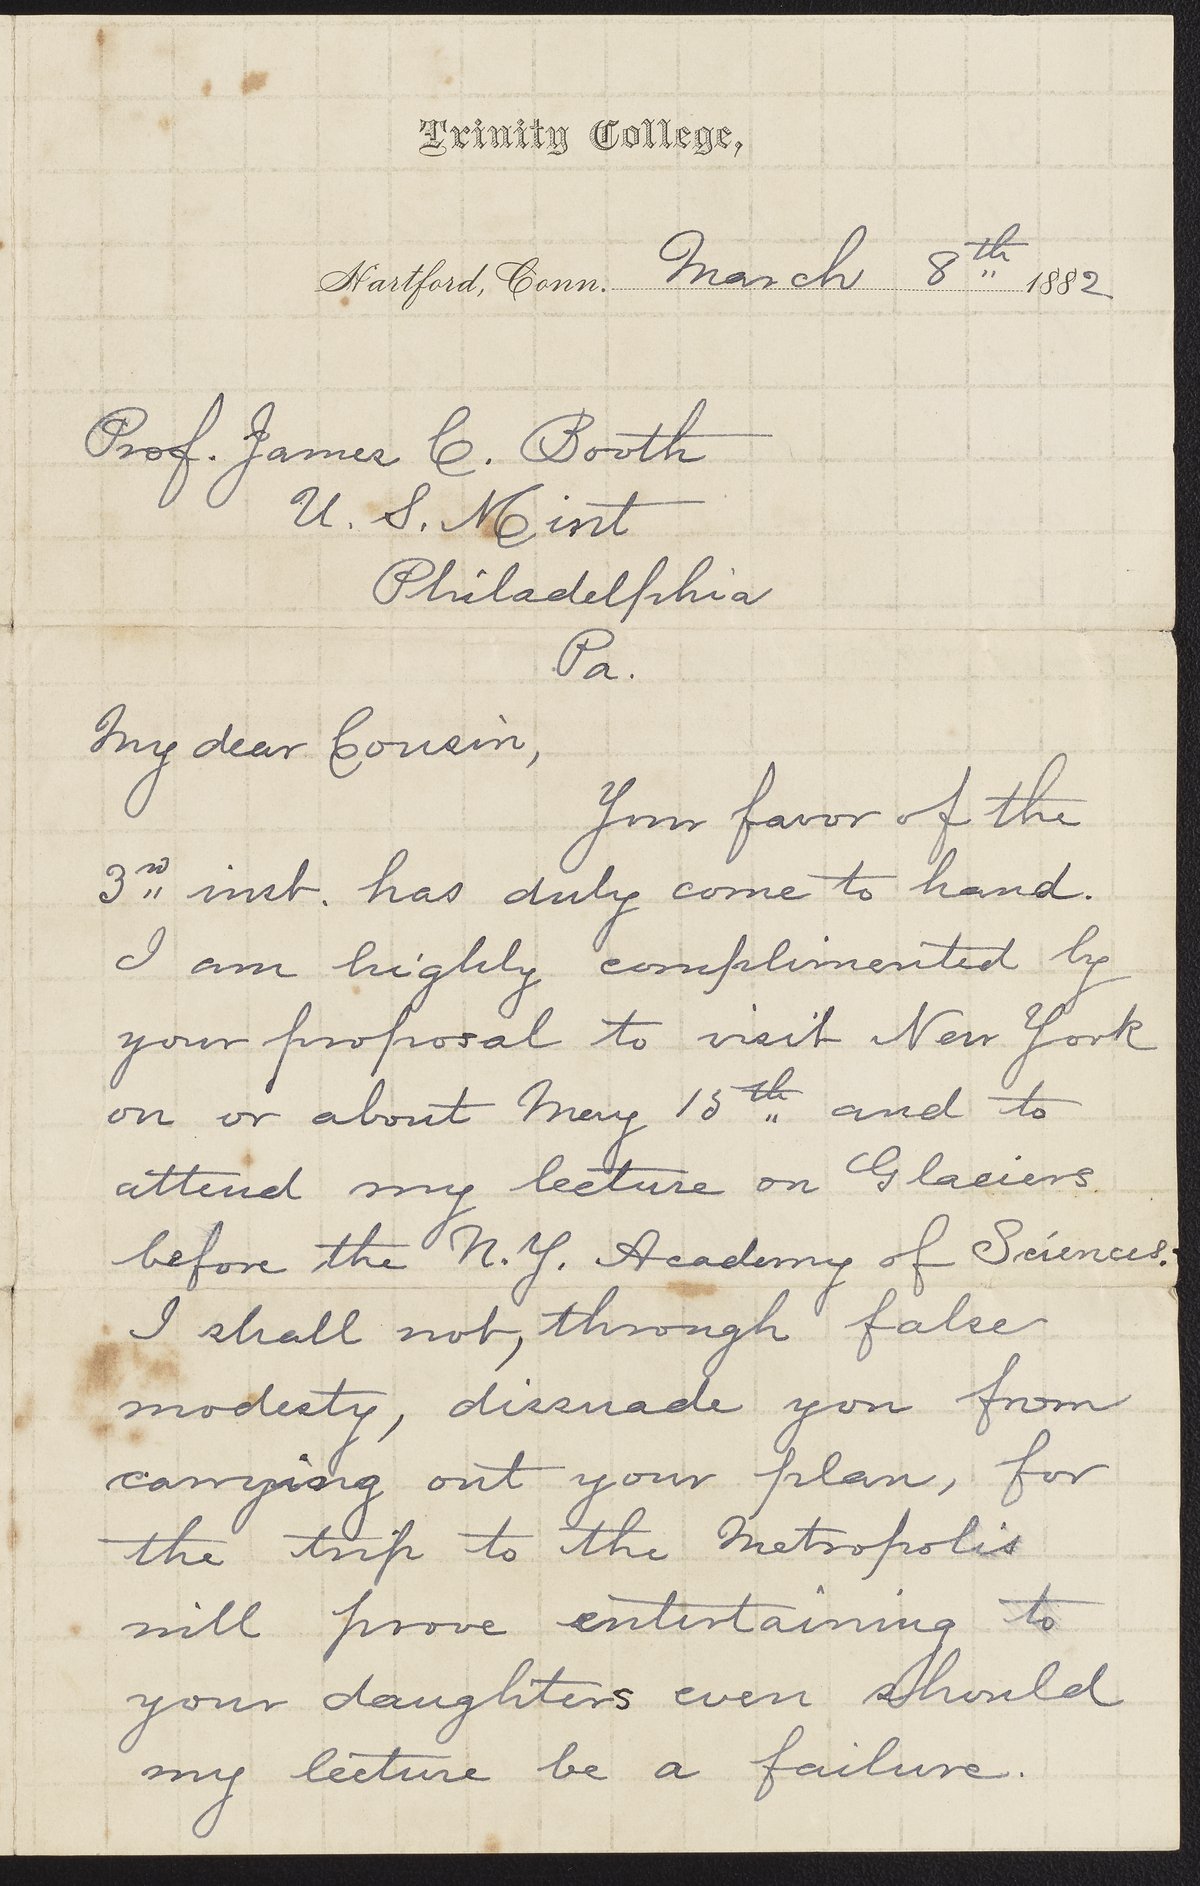 Trinity College,
Hartford, Conn. March 8th 1882
Prof. James C. Booth
U. S. Mint
Philadelphia
Pa.
My dear Cousin,
Your favor of the
3rd inst. has duly come to hand.
I am highly complimented by
your proposal to visit New York
on or about May 15th and to
attend my lecture on Glaciers
before the N.Y. Academy of Sciences.
I shall not, through false
modesty, dissuade you from
carrying out your plan, for
the trip to the Metropolis
will prove entertaining to
your daughters even should
my lecture be a failure.